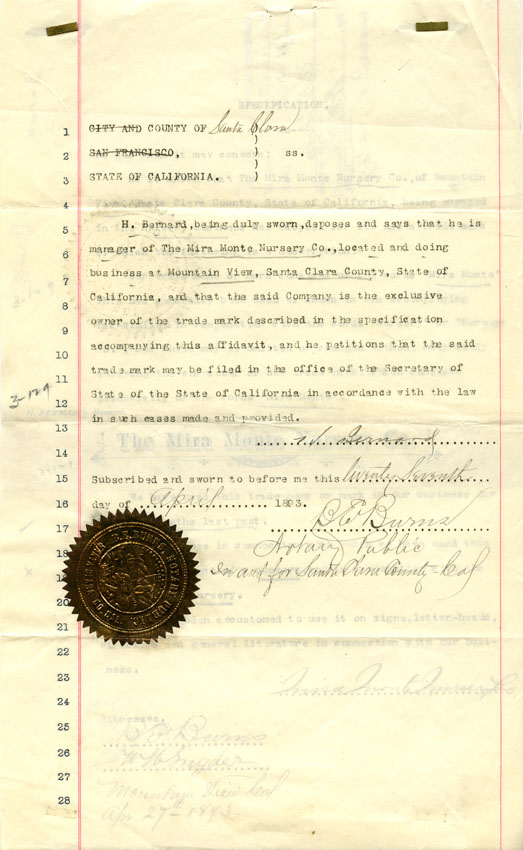 SPECIFICATION.
1 CITY AND COUNTY OF Santa Clara )
2 SAN FRANCISCO, ) ss.
3 STATE OF CALIFORNIA. )
4
5 H. Bernard, being duly sworn, deposes and says that he is
6 manager of The Mira Monte Nursery Co., located and doing
business at Mountain View, Santa Clara County, State of
7 California, and that the said Company is the exclusive
8 owner of the trade mark described in the specification
9 accompanying this affidavit, and he petitions that the said
10 trade mark may be filed in the office of the Secretary of
11 State of the State of California in accordance with the law
12 in such cases made and provided.
13 H. Bernard
14
15 Subscribed and sworn to before me this twenty seventh
16 day of April 1893.
17 B E Burns
18 Notary Public
in and for Santa Clara County Cal
20
21
22
23
24
25
26
27
28
3-129
3-129
The Mira Monte
Nursery.
accustomed to use it on signs, letter-heads,
general literature in connection with our busi-
ness.
Witnesses.
B E Burns
W W Snyder
Mountain View Cal
Apr 27th 1893